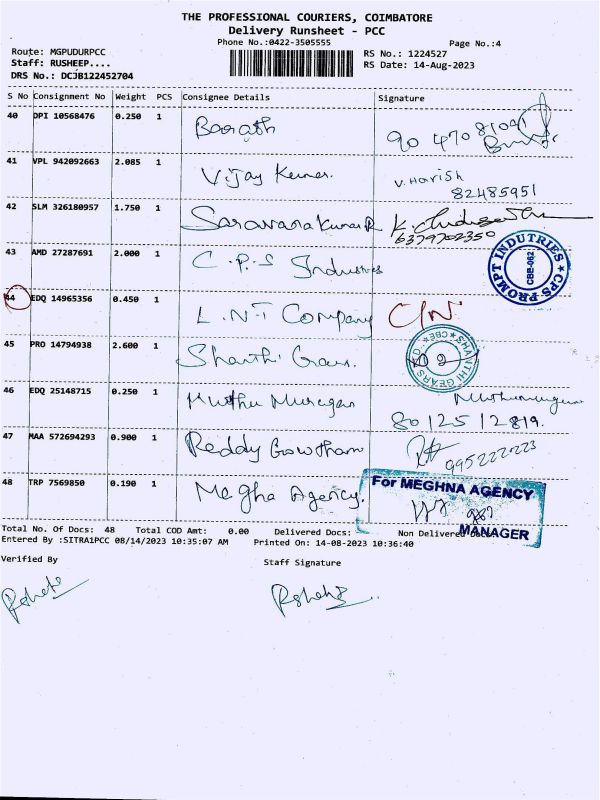 THE PROFESSIONAL COURIERS, COIMBATORE
Delivery Runsheet - PCC
Phone No.:0422-3505555
Page No.:4
Route: MGPUDURPCC
Staff: RUSHEEP....
DRS No.: DCJB122452704
RS No.: 1224527
RS Date: 14-Aug-2023
S No Consignment No Weight PCS Consignee Details Signature
40 DPI 10568476 0.250 1 Barath
41 VPL 942092663 2.085 1 Vijay Kumar. V. Harish
82485951
42 SLM 326180957 1.750 1 Saravana Kumar R
6379702350
43 AMD 27287691 2.000 1 C.P.S Industries
CPS-PROMPT INDUTRIES
CBE-062
44 EDQ 14965356 0.450 1 L.N.T Company C/N
45 PRO 14794938 2.600 1 Shanthi Gears.
SHANTHI GEARS CBE
46 EDQ 25148715 0.250 1 Muthu Murugan
8012512819.
47 MAA 572694293 0.900 1 Reddy Gowtham
995222223
48 TRP 7569850 0.190 1 Megha Agency.
For MEGHNA AGENCY
MANAGER
Total No. Of Docs: 48 Total COD Amt: 0.00 Delivered Docs: Non Delivered Docs:
Entered By :SITRA1PCC 08/14/2023 10:35:07 AM Printed On: 14-08-2023 10:36:40
Verified By
Staff Signature